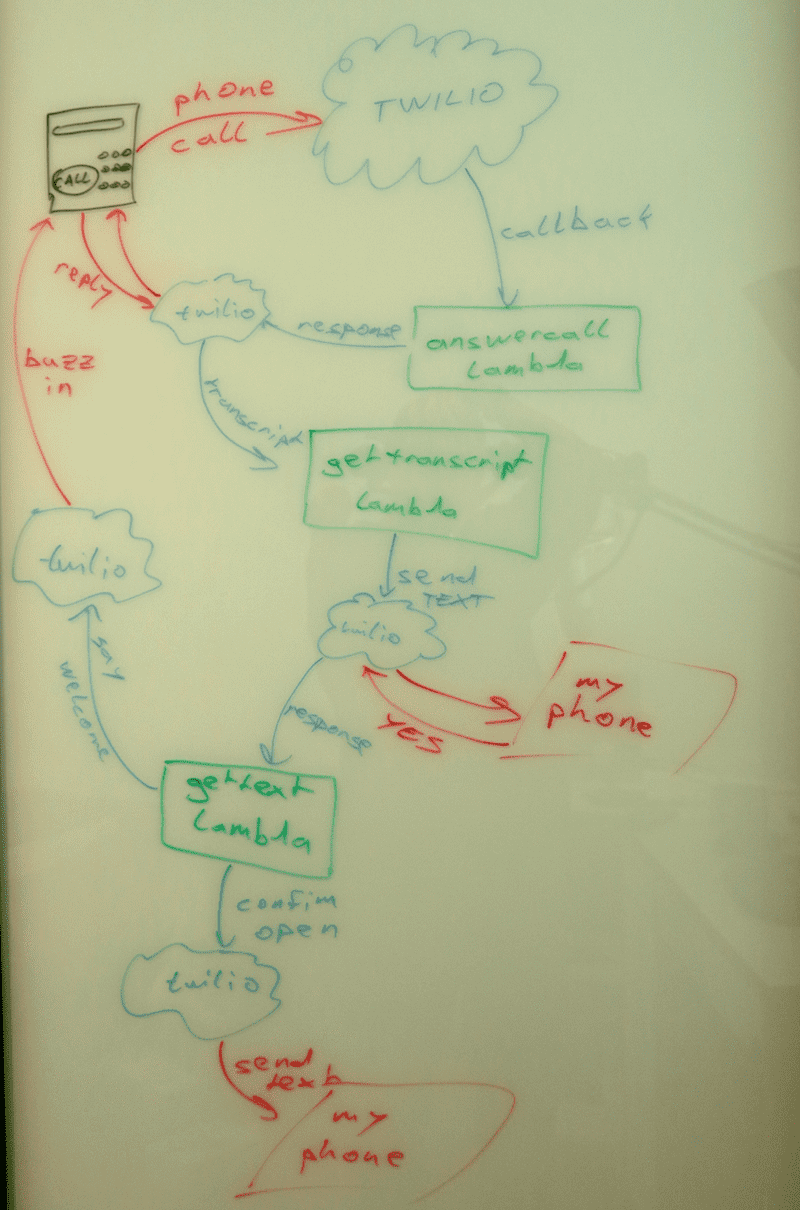 phone
call
TWILIO
CALL
callback
reply
twilio
response
answercall
lambda
buzz
in
transcript
gettranscript
lambda
twilio
send
TEXT
twilio
say
welcome
response
YES
my
phone
gettext
lambda
confim
open
twilio
send
text
my
phone